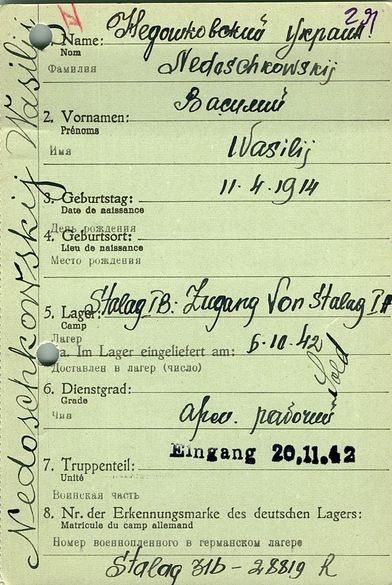 IV
291
Недошковский украин
1. Name:
Nom
Фамилия
Nedaschkowskij
Василий
2. Vornamen:
Prénoms
Имя
Wasilij
11.4.1914
3. Geburtstag:
Date de naissance
День рождения
4. Geburtsort:
Lieu de naissance
Место рождения
Stalag IB: Zugang von Stalag IA
5. Lager:
Camp
Лагер
a. Im Lager eingeliefert am: 6.10.42
Доставлен в лагер (число)
Sold
6. Dienstgrad:
Grade
Чин
рабочий
Eingang 20.11.42
7. Truppenteil:
Unité
Воинская часть
8. Nr. der Erkennungsmarke des deutschen Lagers:
Matricule du camp allemand
Номер военнопленного в германском лагере
28819 R
Nedoschkowskij Wasilij